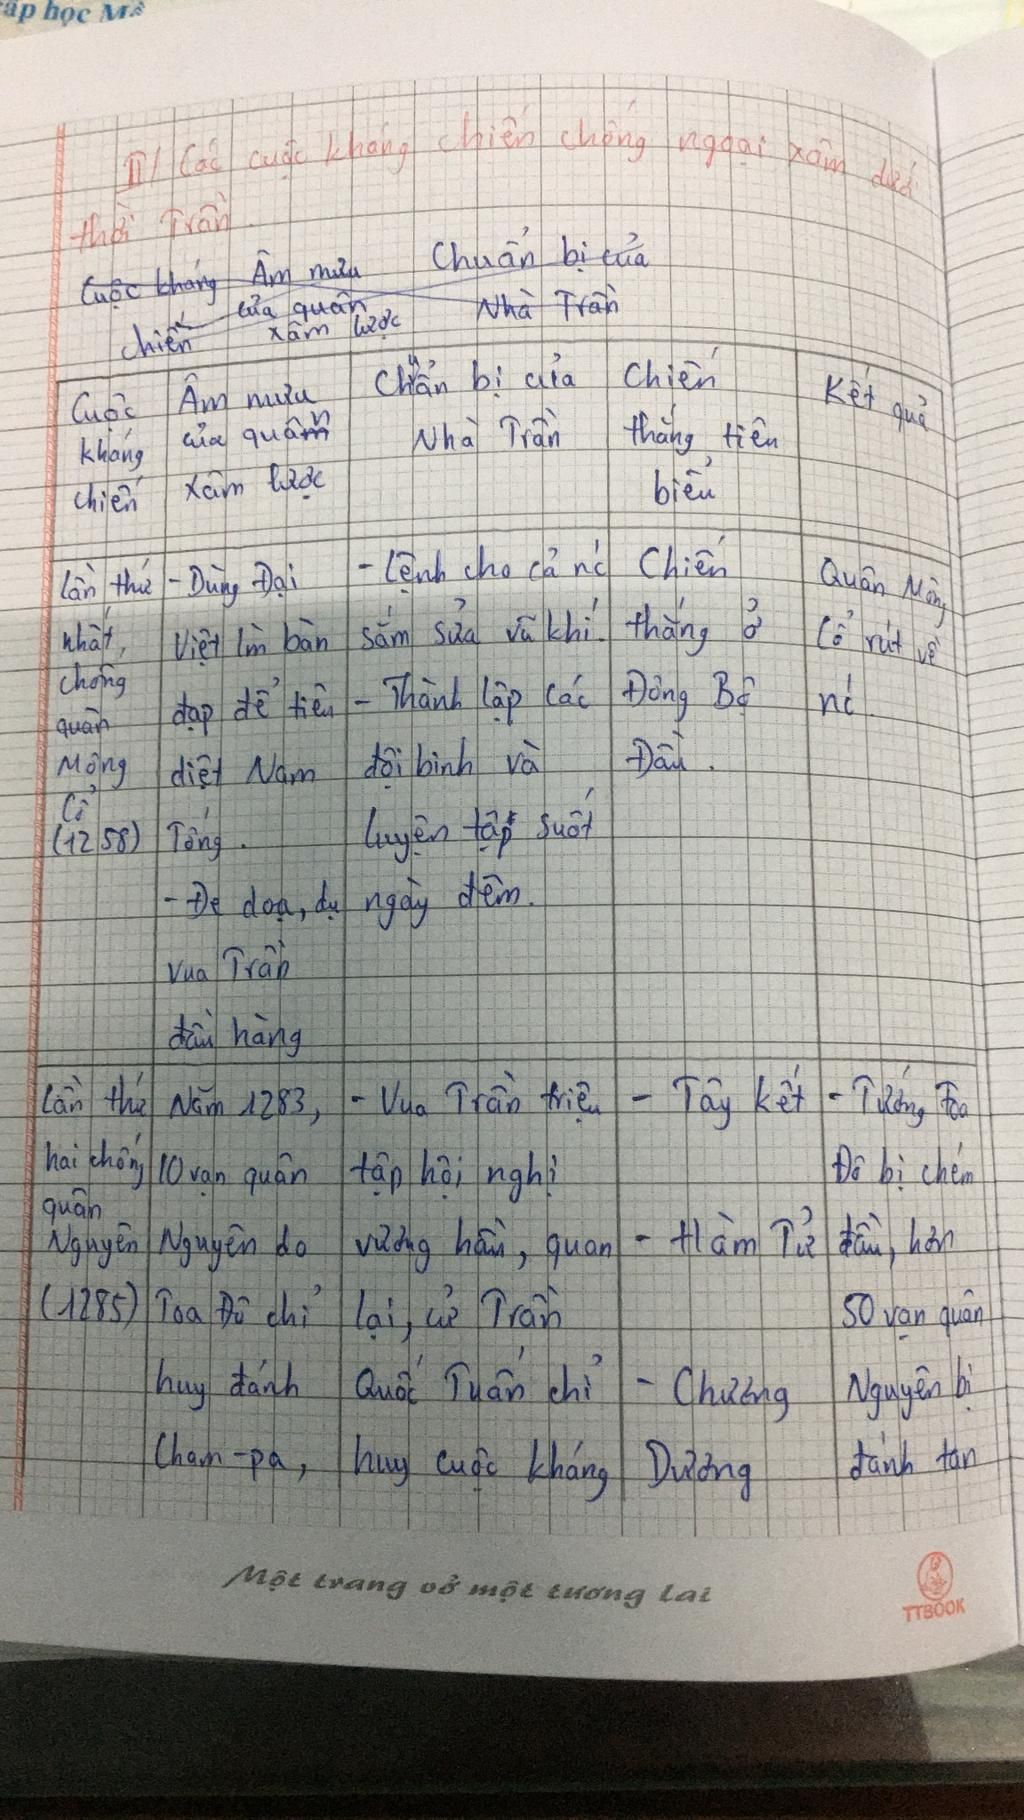 II/ Các cuộc kháng chiến chống ngoại xâm dưới
thời Trần.
Cuộc kháng Âm mưu Chuẩn bị của
của quân Nhà Trần
chiến xâm lược
Cuộc
kháng
chiến
Âm mưu
của quân
xâm lược
Chuẩn bị của
Nhà Trần
Chiến
thắng tiêu
biểu
Kết quả
Lần thứ
nhất,
chống
quân
Mông
Cổ
(1258)
- Dùng Đại
Việt làm bàn
đạp để tiêu
diệt Nam
Tống.
- Đe doạ, dụ
vua Trần
đầu hàng
- Lệnh cho cả nc
sắm sửa vũ khí.
- Thành lập các
đội binh và
luyện tập suốt
ngày đêm.
Chiến
thắng ở
Đông Bộ
Đầu.
Quân Mông
Cổ rút về
nc
Lần thứ
hai chống
quân
Nguyên
(1285)
Năm 1283,
10 vạn quân
Nguyên do
Toa Đô chỉ
huy đánh
Cham-pa,
- Vua Trần triệu
tập hội nghị
vương hầu, quan
lại, cử Trần
Quốc Tuấn chỉ
huy cuộc kháng
- Tây Kết
- Hàm Tử
- Chương
Dương
- Tướng Toa
Đô bị chém
đầu, hơn
50 vạn quân
Nguyên bị
đánh tan
Một trang vở một tương lai
TTBOOK